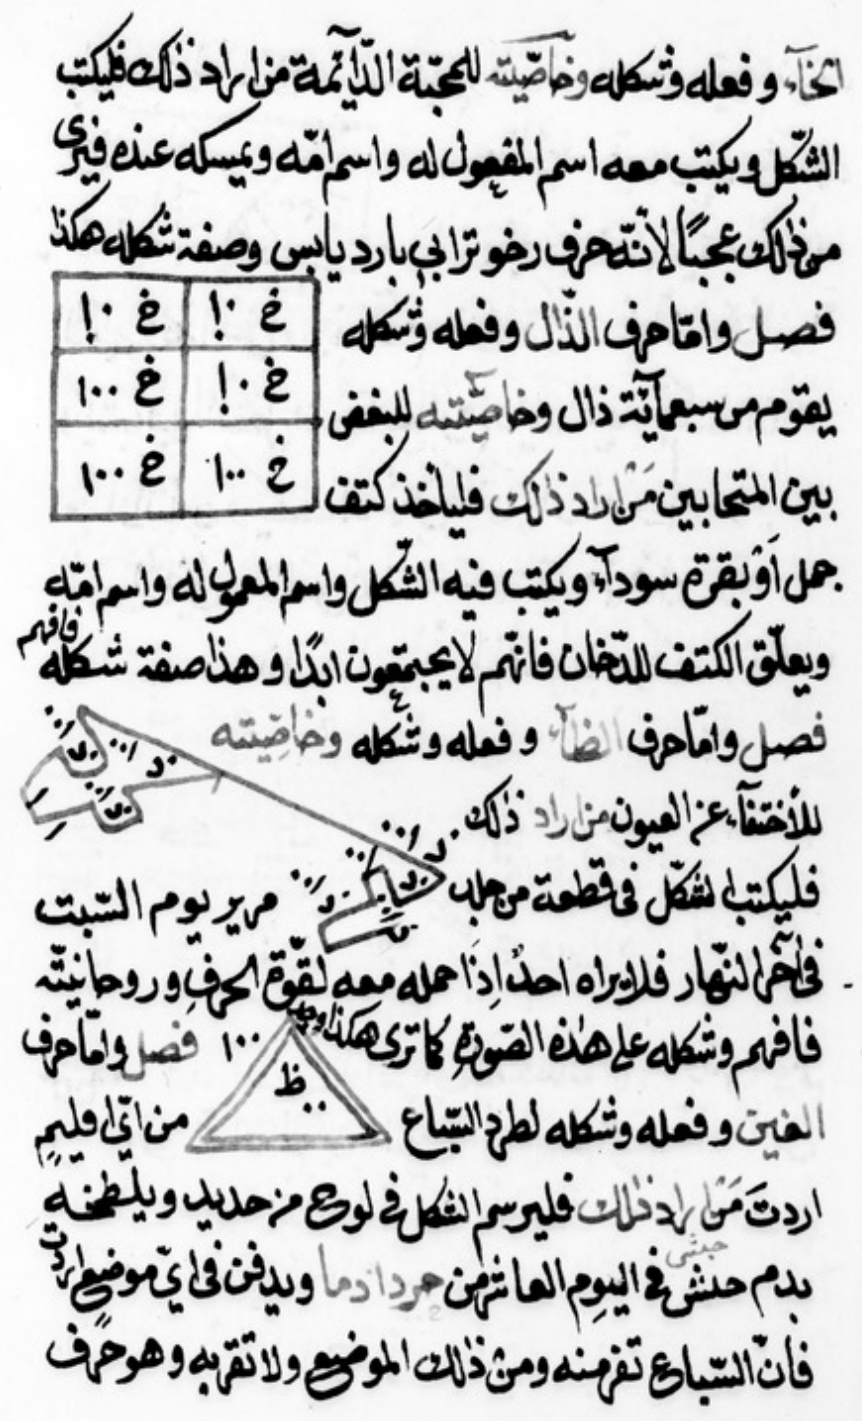 الخآء وفعله وشكله وخاصّيته للمحبّة الدّآئمة من اراد ذلك فليكتب
الشّكل ويكتب معه اسم المفعول له واسم امّه ويمسكه عنده فيرى
من ذلك عجبًا لأنّه حرف رخو ترابي بارد يابس وصفة شكله هكذا
خ ١٠ خ ١٠
فصل وامّا حرف الذّال وفعله وشكله
خ ١٠ خ ١٠٠
يقوم من سبعمآئة ذال وخاصّيّته للبغض
خ ١٠٠ خ ١٠٠
بين المتحابين مَن اراد ذلك فليأخذ كتف
جمل أوْ بقرة سودآء ويكتب فيه الشّكل واسم المعمول له واسم امّه
ويعلّق الكتف للدّخان فانّهم لا يجتمعون ابدًا وهذا صفة شكله فافهم
فصل وامّا حرف الظآء وفعله وشكله وخاصّيته
للأختفآء عن العيون من اراد ذلك
فليكتب الشكّل فى قطعة من جلد حرير يوم السّبت
فى آخر النّهار فلا يراه احدٌ إذا حمله معه لقوّة الحرف وروحانيّته
فافهم وشكله على هذه الصّورة كما ترى هكذا
ظ
١٠٠ فصل وامّا حرف
الغين وفعله وشكله لطرد السّباع من ايّ اقليمٍ
اردتَ مَن اراد ذلك فليرسم الشكل فى لوح من حديد ويلطخه
بدم حبش حبشى فى اليوم العاشر من حردادما ويدفن فى ايّ موضع اردت
فانّ السّباع تفر منه ومن ذلك الموضع ولا تقربه وهو حرف